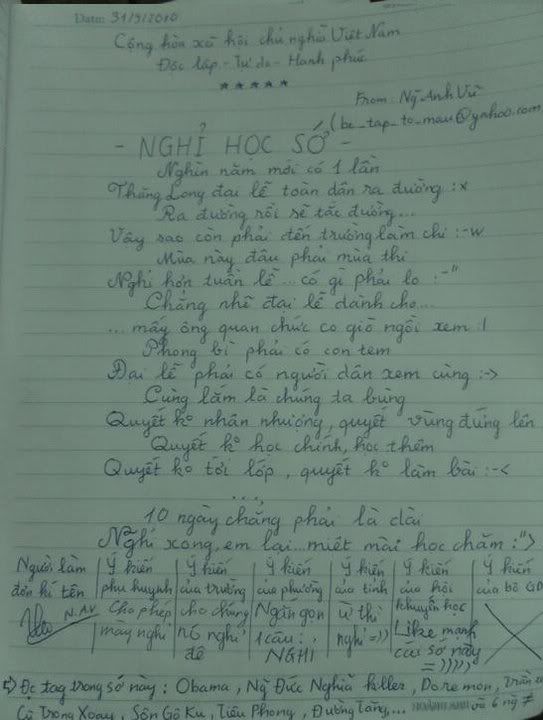 Date: 31/9/2010
Cộng hòa xã hội chủ nghĩa Việt Nam
Độc lập - Tự do - Hạnh phúc
★★★★★
From: Ng̃ Anh Vũ
(be_tap_to_mau@yahoo.com
- NGHỈ HỌC SỚ -
Nghìn năm mới có 1 lần
Thăng Long đại lễ toàn dân ra đường :x
Ra đường rồi sẽ tắc đường...
Vậy sao còn phải đến trường làm chi :-w
Mùa này đâu phải mùa thi
Nghỉ hơn tuần lễ... có gì phải lo :-"
Chẳng nhẽ đại lễ dành cho...
... mấy ông quan chức co giò ngồi xem :|
Phong bì phải có con tem
Đại lễ phải có người dân xem cùng :->
Cùng lắm là chúng ta bùng
Quyết ko nhân nhượng, quyết vùng đứng lên
Quyết ko học chính, học thêm
Quyết ko tới lớp, quyết ko làm bài :-<
...,
10 ngày chẳng phải là dài
Nghỉ xong, em lại... miệt mài học chăm :">
Người làm đơn kí tên N.AV
Ý kiến phụ huynh Cho phép mày nghỉ
Ý kiến của trường cho chúng nó nghỉ đê
Ý kiến của phường Ngắn gọn 1 câu: NGHỈ
Ý kiến của tỉnh ừ thì nghỉ =))
Ý kiến của hội khuyến học Like mạnh cái sớ này =)))))
Ý kiến của bộ GD
=> Đc tag trong sớ này: Obama, Ng̃ Đức Nghĩa killer, Doremon, Trần
Cù Trọng Xoay, Sôn Gô Ku, Tiêu Phong, Đường Tăng,... và 6 ng ≠